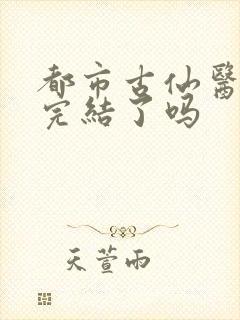 都市古仙醫
完結了吗
天萱雨